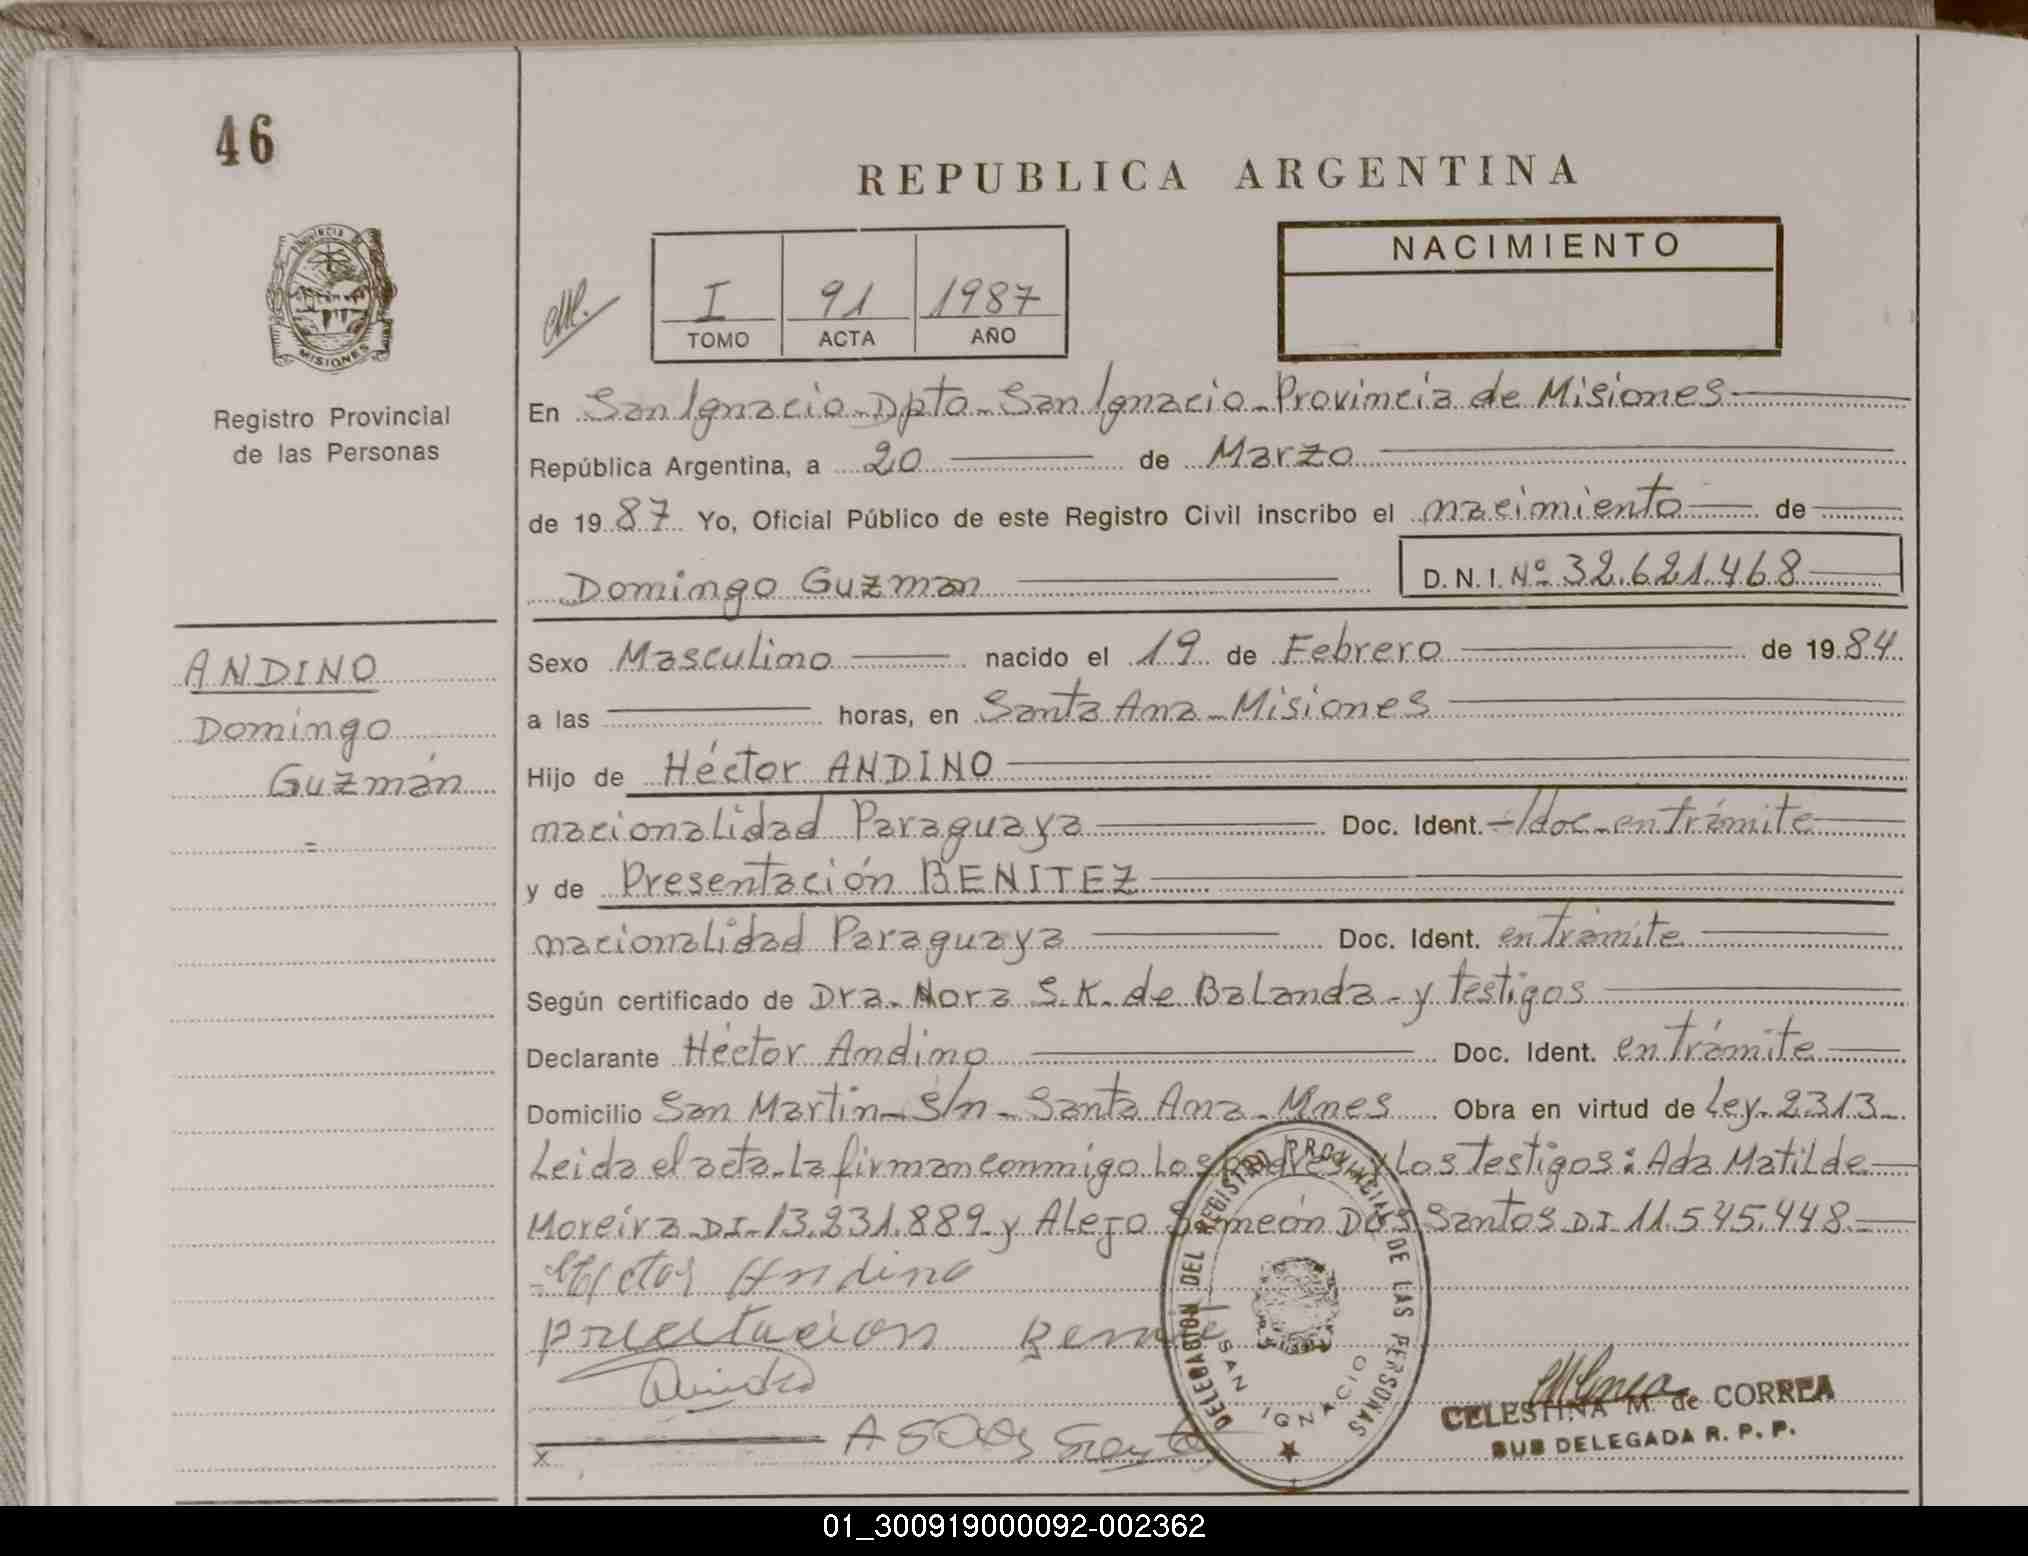 46
REPUBLICA ARGENTINA
PROVINCIA DE
MISIONES
Registro Provincial
de las Personas
I 91 1987
TOMO ACTA AÑO
NACIMIENTO
En San Ignacio Dpto. San Ignacio. Provincia de Misiones
República Argentina, a 20 de Marzo
de 1987 Yo, Oficial Público de este Registro Civil inscribo el nacimiento de
Domingo Guzman D.N.I. Nº 32.621.468
ANDINO
Domingo
Guzmán
=
Sexo Masculino nacido el 19 de Febrero de 1984
a las horas, en Santa Ana - Misiones
Hijo de Héctor ANDINO
nacionalidad Paraguaya Doc. Ident. -/doc. en trámite
y de Presentación BENITEZ
nacionalidad Paraguaya Doc. Ident. en trámite
Según certificado de Dra. Nora S.K. de Balanda - y testigos
Declarante Héctor Andino Doc. Ident. en trámite
Domicilio San Martin - S/n - Santa Ana - Mnes Obra en virtud de Ley - 2313 -
Leida el acta - La firman conmigo Los padres y Los testigos: Ada Matilde
Moreira DI - 13.231.889 y Alejo Simeón Dos Santos DI 11.545.448
Hector Andino
DELEGACION DEL REGISTRO PROVINCIAL DE LAS PERSONAS
SAN IGNACIO
CELESTINA M. de CORREA
SUB DELEGADA R. P. P.
x
01_300919000092-002362